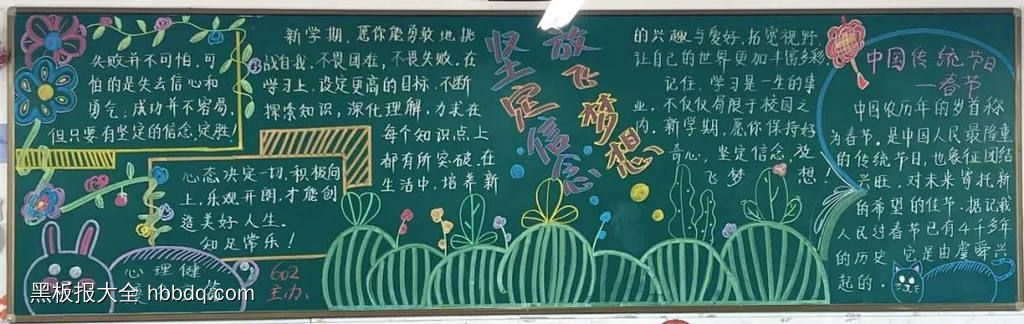 失败并不可怕,可
怕的是失去信心和
勇气,成功并不容易,
但只要有坚定的信念,定胜!
心态决定一切,积极向
上,乐观开朗,才能创
造美好人生。
知足常乐!
心理健
602
主办.
新学期,愿你能勇敢地挑
战自我,不畏困难,不畏失败.在
学习上,设定更高的目标.不断
探索知识,深化理解,力求在
每个知识点上
都有所突破.在
生活中,培养新
坚定信念
放飞梦想
的兴趣与爱好,拓宽视野
让自己的世界更加丰富多彩
记住,学习是一生的事
业,不仅仅有限于校园之
内.新学期,愿你保持好
奇心,坚定信念,放
飞梦想!
中国传统节日
—春节
中国农历年的岁首称
为春节。是中国人民最隆重
的传统节日,也象征团结
兴旺,对未来寄托新
的希望的佳节.据记载
人民过春节已有4千多年
的历史 它是由虞舜兴
起的.
黑板报大全 hbbdq.com